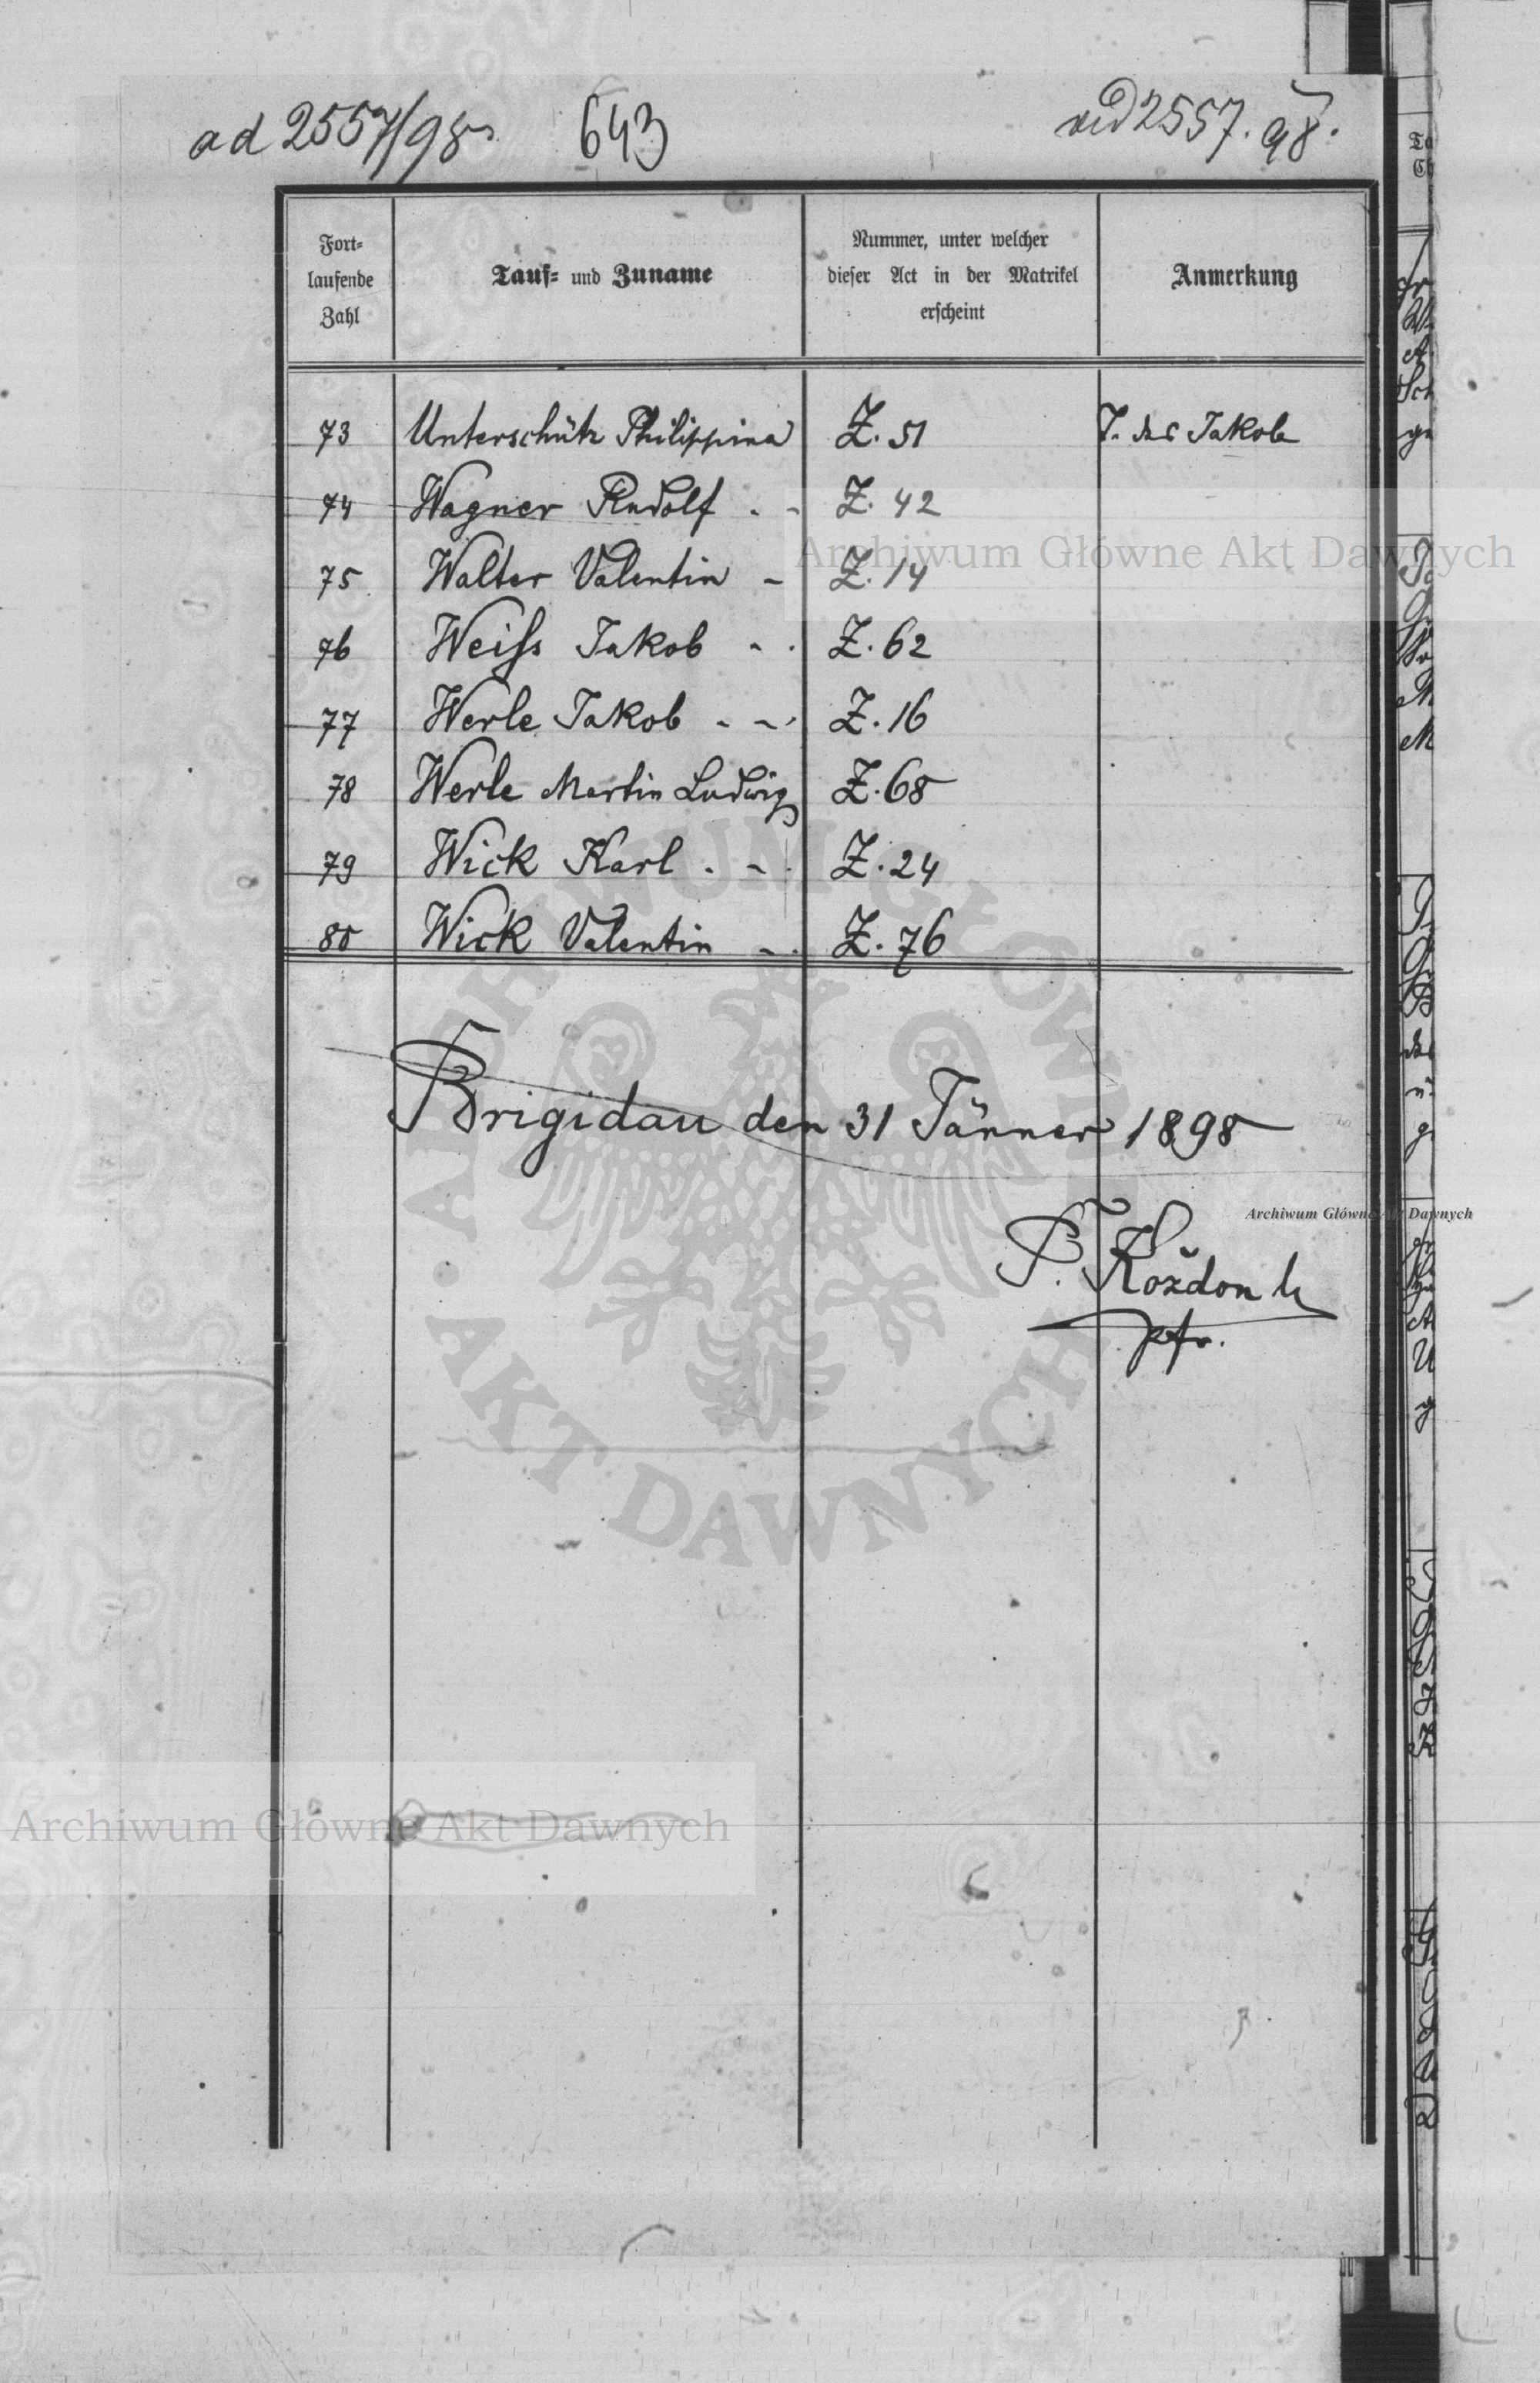 ad 2557/98 643 ad 2557.98.
Fort-
laufende
Zahl
Tauf- und Zuname
Nummer, unter welcher
dieser Act in der Matrikel
erscheint
Anmerkung
73 Unterschütz Philippina Z. 51 T. des Jakob
74 Wagner Rudolf . - Z. 42
75 Walter Valentin - Z. 14
76 Weiss Jakob - . Z. 62
77 Werle Jakob - - . Z. 16
78 Werle Martin Ludwig Z. 68
79 Wick Karl . - . Z. 24
80 Wick Valentin - . Z. 76
Brigidau den 31 Jänner 1898
P. Koždon
pfr.
Archiwum Główne Akt Dawnych
Archiwum Główne Akt Dawnych
Archiwum Główne Akt Dawnych
ARCHIWUM GŁÓWNE AKT DAWNYCH